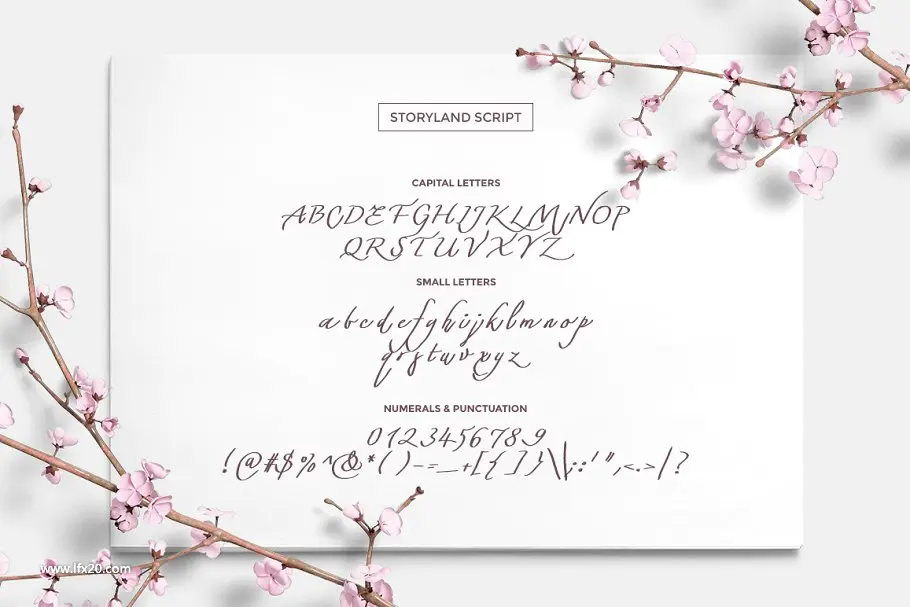 STORYLAND SCRIPT
CAPITAL LETTERS
ABCDEFGHIJKLMNOP
QRSTUVXYZ
SMALL LETTERS
abcdefghijklmnop
qrstuvxyz
NUMERALS & PUNCTUATION
0123456789
!@#$%^&*()-=_+[{]}\|;:'",<.>/?
www.lfx20.com